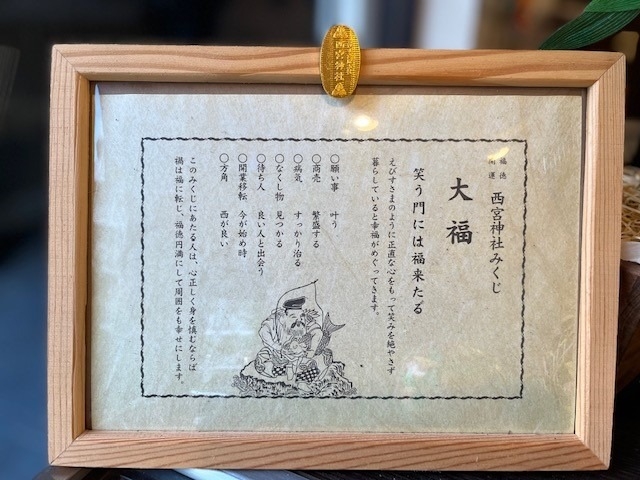 西宮神社
福徳
開運
西宮神社みくじ
大福
笑う門には福来たる
えびすさまのように正直な心をもって笑みを絶やさず
暮らしていると幸福がめぐってきます。
○願い事 叶う
○商売 繁盛する
○病気 すっかり治る
○なくし物 見つかる
○待ち人 良い人と出会う
○開業移転 今が始め時
○方角 西が良い
このみくじにあたる人は、心正しく身を慎むならば
禍は福に転じ、福徳円満にして周囲をも幸せにします。